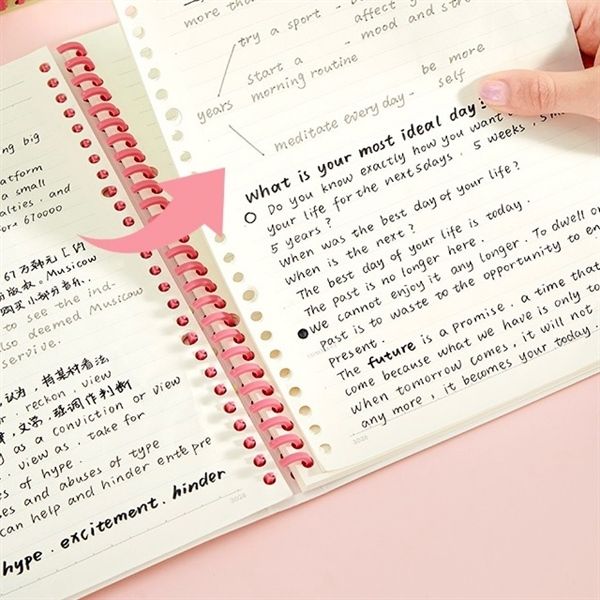 ng big
atform
a small
alties . and
fore 670000
67万韩元 [内
版权. Musicow
购买小部分音乐.
to see the ind-
also deemed Musicow
servive.
认为, 持某种看法
reckon, view
强调作判断
g as a conviction or view
view as, take for
s of hype.
ses and abuses of type
can help and hinder entepre
hype . excitement . hinder
3026
more than
try a sport - affect
mood and stre
start a
morning routine
years
be more
self
meditate every day -
What is your most ideal day?
Do you know exactly how you want
your life for the next 5days . 5 weeks . 5 m
5 years ?
When was the best day of your life?
When is the next ?
The best day of your life is today .
The past is no longer here.
We cannot enjoy it any longer. To dwell on
past is to waste to the opportunity to en
present.
The future is a promise . a time that
come because what we have is only to
When tomorrow comes, it will not
any more , it becomes your today .
3026